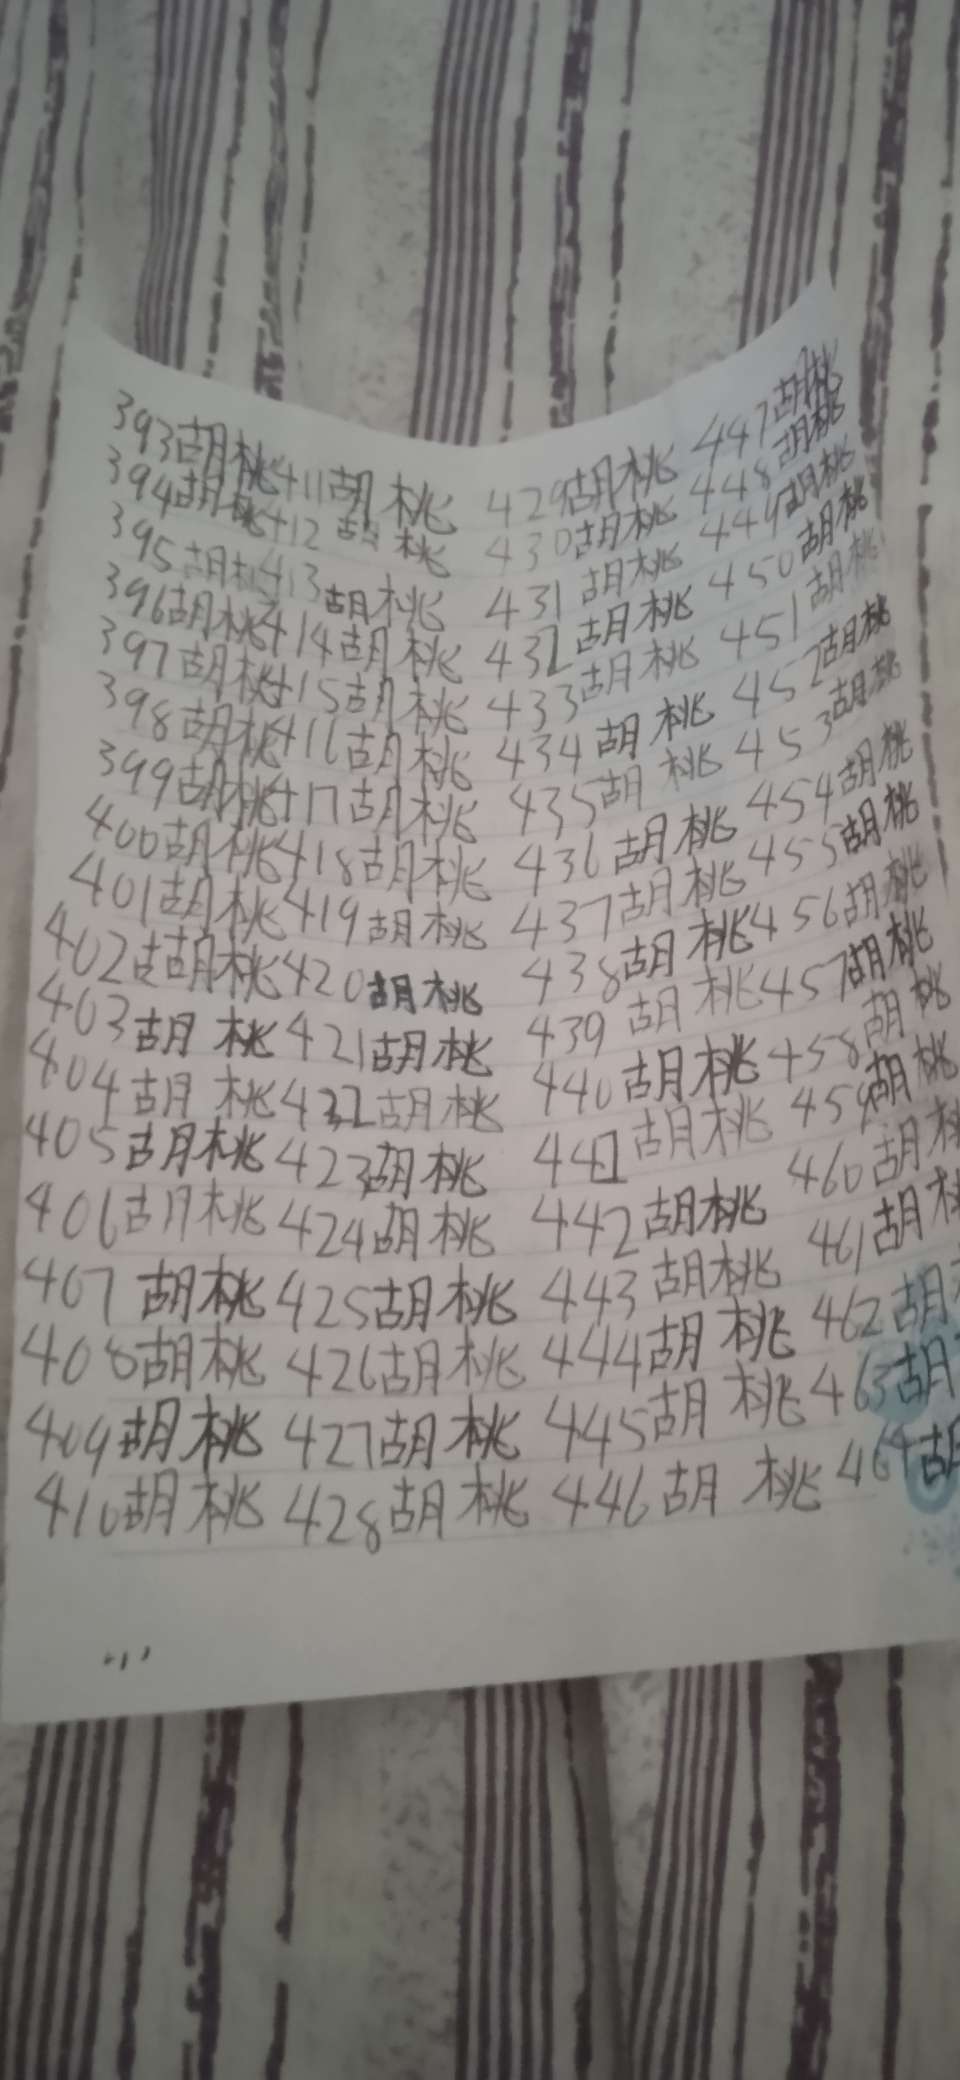 393胡桃
394胡桃
395胡桃
396胡桃
397胡桃
398胡桃
399胡桃
400胡桃
401胡桃
402胡桃
403胡桃
404胡桃
405胡桃
406胡桃
407胡桃
408胡桃
409胡桃
410胡桃
411胡桃
412胡桃
413胡桃
414胡桃
415胡桃
416胡桃
417胡桃
418胡桃
419胡桃
420胡桃
421胡桃
422胡桃
423胡桃
424胡桃
425胡桃
426胡桃
427胡桃
428胡桃
429胡桃
430胡桃
431胡桃
432胡桃
433胡桃
434胡桃
435胡桃
436胡桃
437胡桃
438胡桃
439胡桃
440胡桃
441胡桃
442胡桃
443胡桃
444胡桃
445胡桃
446胡桃
447胡桃
448胡桃
449胡桃
450胡桃
451胡桃
452胡桃
453胡桃
454胡桃
455胡桃
456胡桃
457胡桃
458胡桃
459胡桃
460胡桃
461胡桃
462胡
463胡
464胡